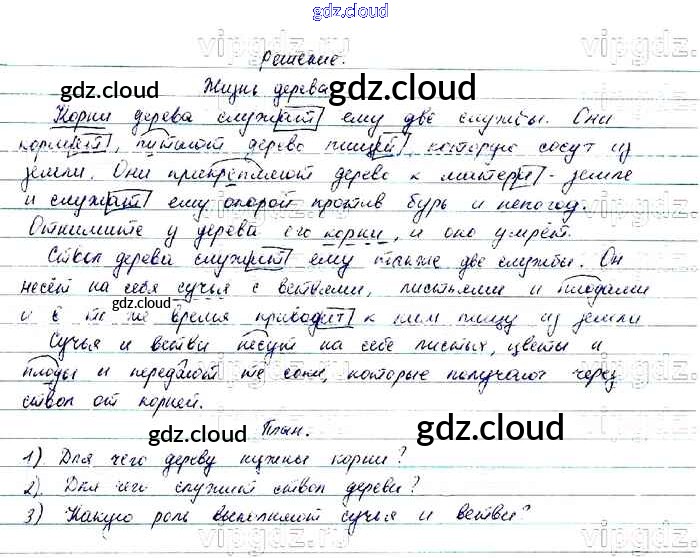 gdz.cloud
Решение.
gdz.cloud
vipgdz.ru
Жизнь дерева
gdz.cloud
Корни дерева служат ему две службы. Они
кормят, питают дерево пищей, которую сосут из
земли. Они прикрепляют дерево к матери-земле
и служат ему опорой против бурь и непогод.
Отнимите у дерева его корни, и оно умрёт.
Ствол дерева служит ему также две службы. Он
несёт на себя сучья с ветвями, листьями и плодами
gdz.cloud
и в то же время приводит к ним пищу из земли
Сучья и ветви несут на себе листья, цветы и
плоды и передают те соки, которые получают через
ствол от корней.
План.
gdz.cloud
gdz.cloud
1) Для чего дереву нужны корни?
2) Для чего служит ствол дерева?
3) Какую роль выполняют сучья и ветви?
vipgdz.ru